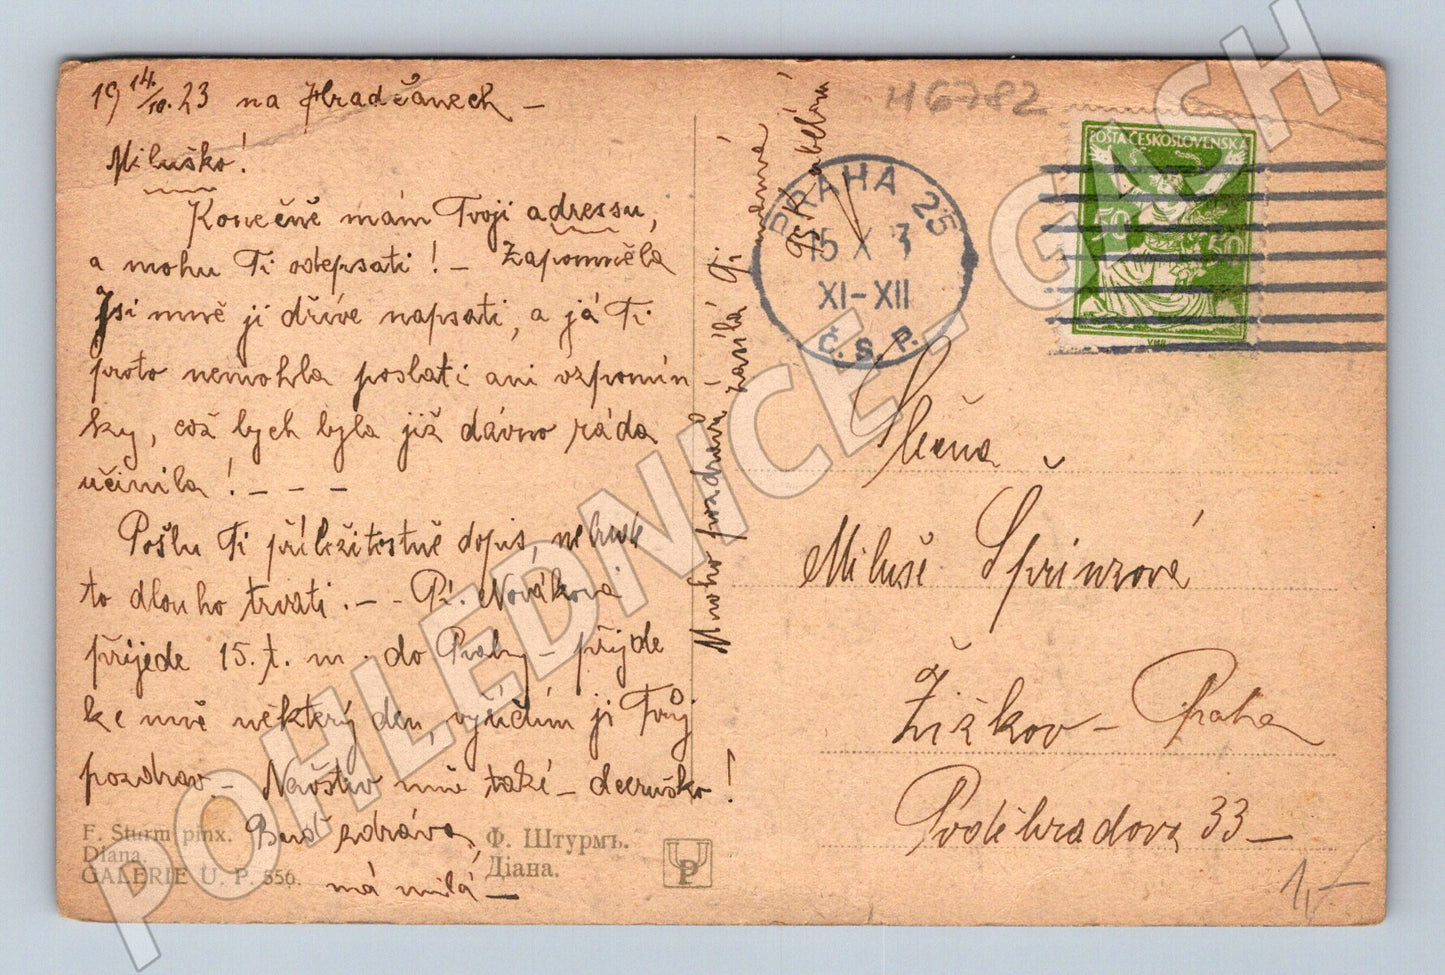 19 14/10. 23 na Hradčanech –
Miluško!
Konečně mám Tvoji adressu,
a mohu Ti odepsati! – Zapomněla
Jsi mně ji dříve napsati, a já Ti
proto nemohla poslati ani vzpomín
ky, což bych byla již dávno ráda
učinila! – – –
Pošlu Ti příležitostně dopis, nebude
to dlouho trvati. – – Pí. Nováková
přijede 15. t. m. do Prahy – přijde
ke mně některý den, vyřídím ji Tvůj
pozdrav – Navštiv mně také – dceruško!
Buď zdráva,
má milá –
Mnoho pozdravů –
zasílá Ti
F. Sturm pinx.
Diana.
GALERIE U. P. 556.
Ф. Штурмъ.
Діана.
UP
H6782
POŠTA ČESKOSLOVENSKÁ
50 50
PRAHA 25
15 X 3
XI–XII
Č. S. P.
Slečna
Miluše Šprinzová
Žižkov – Praha
Poděbradova 33 –
1,–
POHLEDNICE - GASH